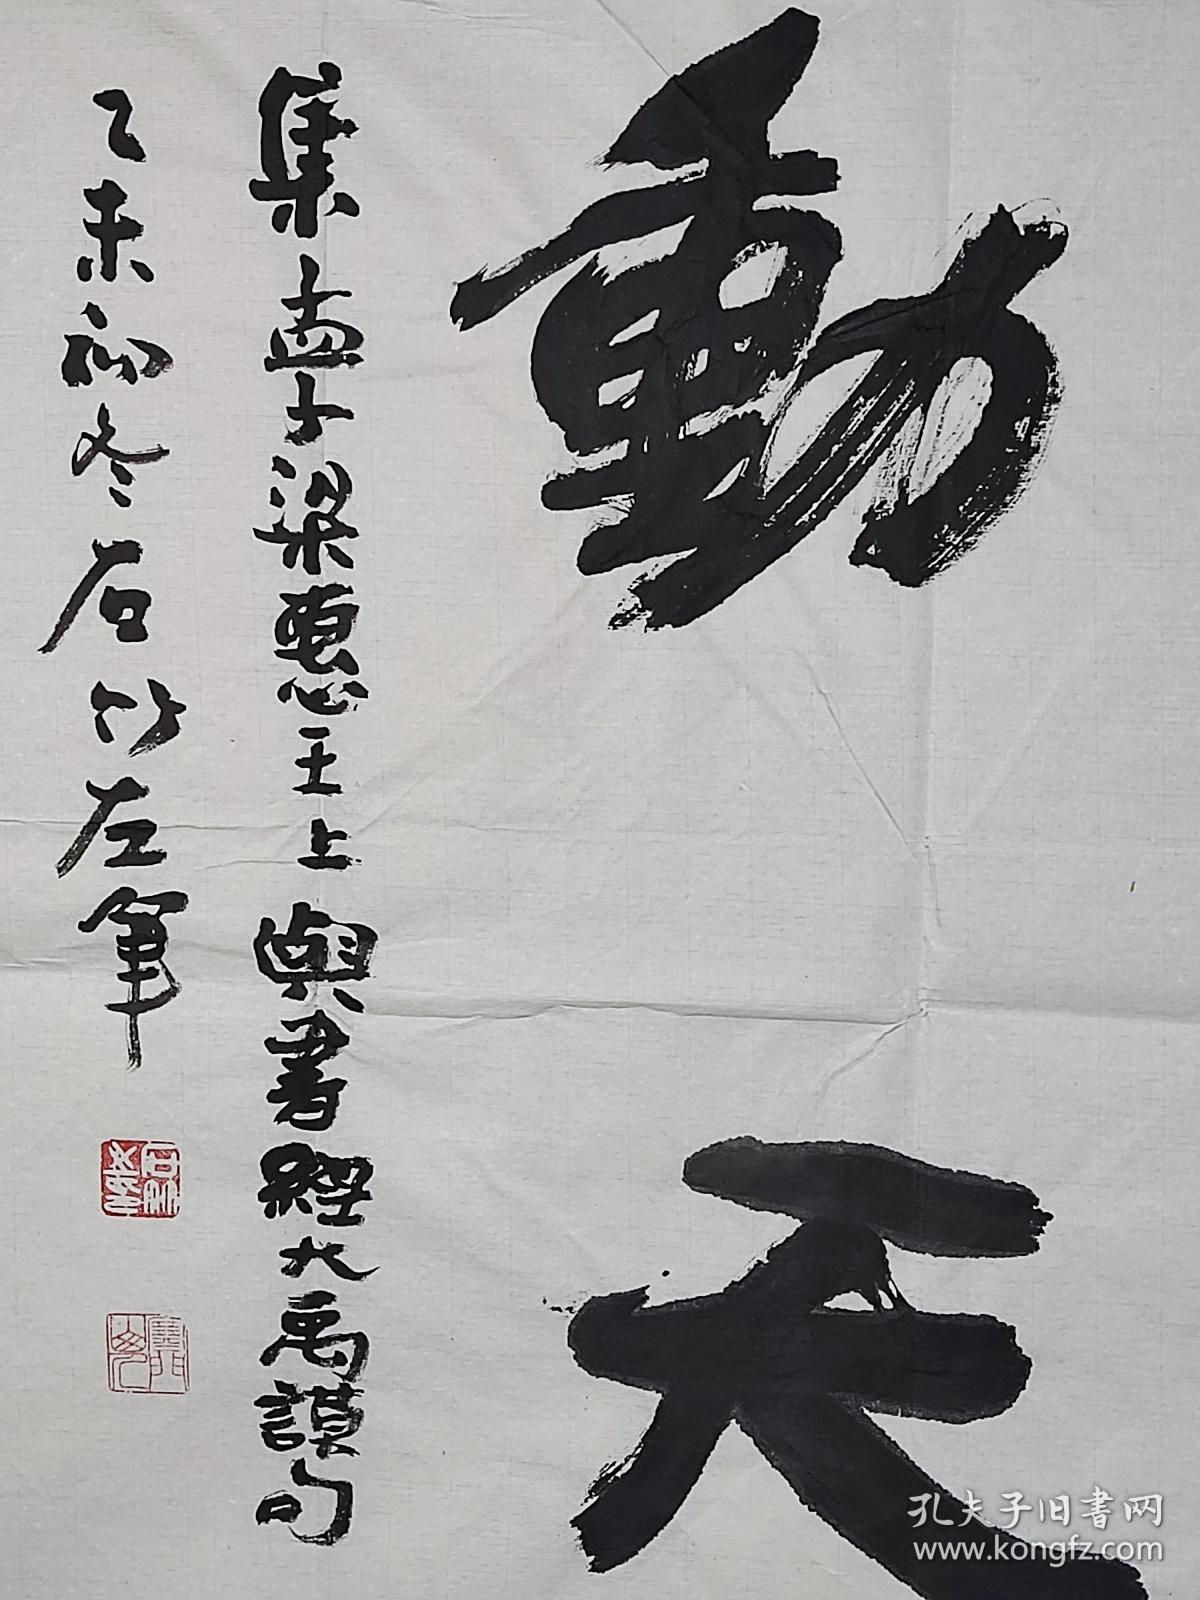 動天
集孟子梁惠王上與書經大禹謨句
乙未初冬石竹左筆
孔夫子旧书网
www.kongfz.com